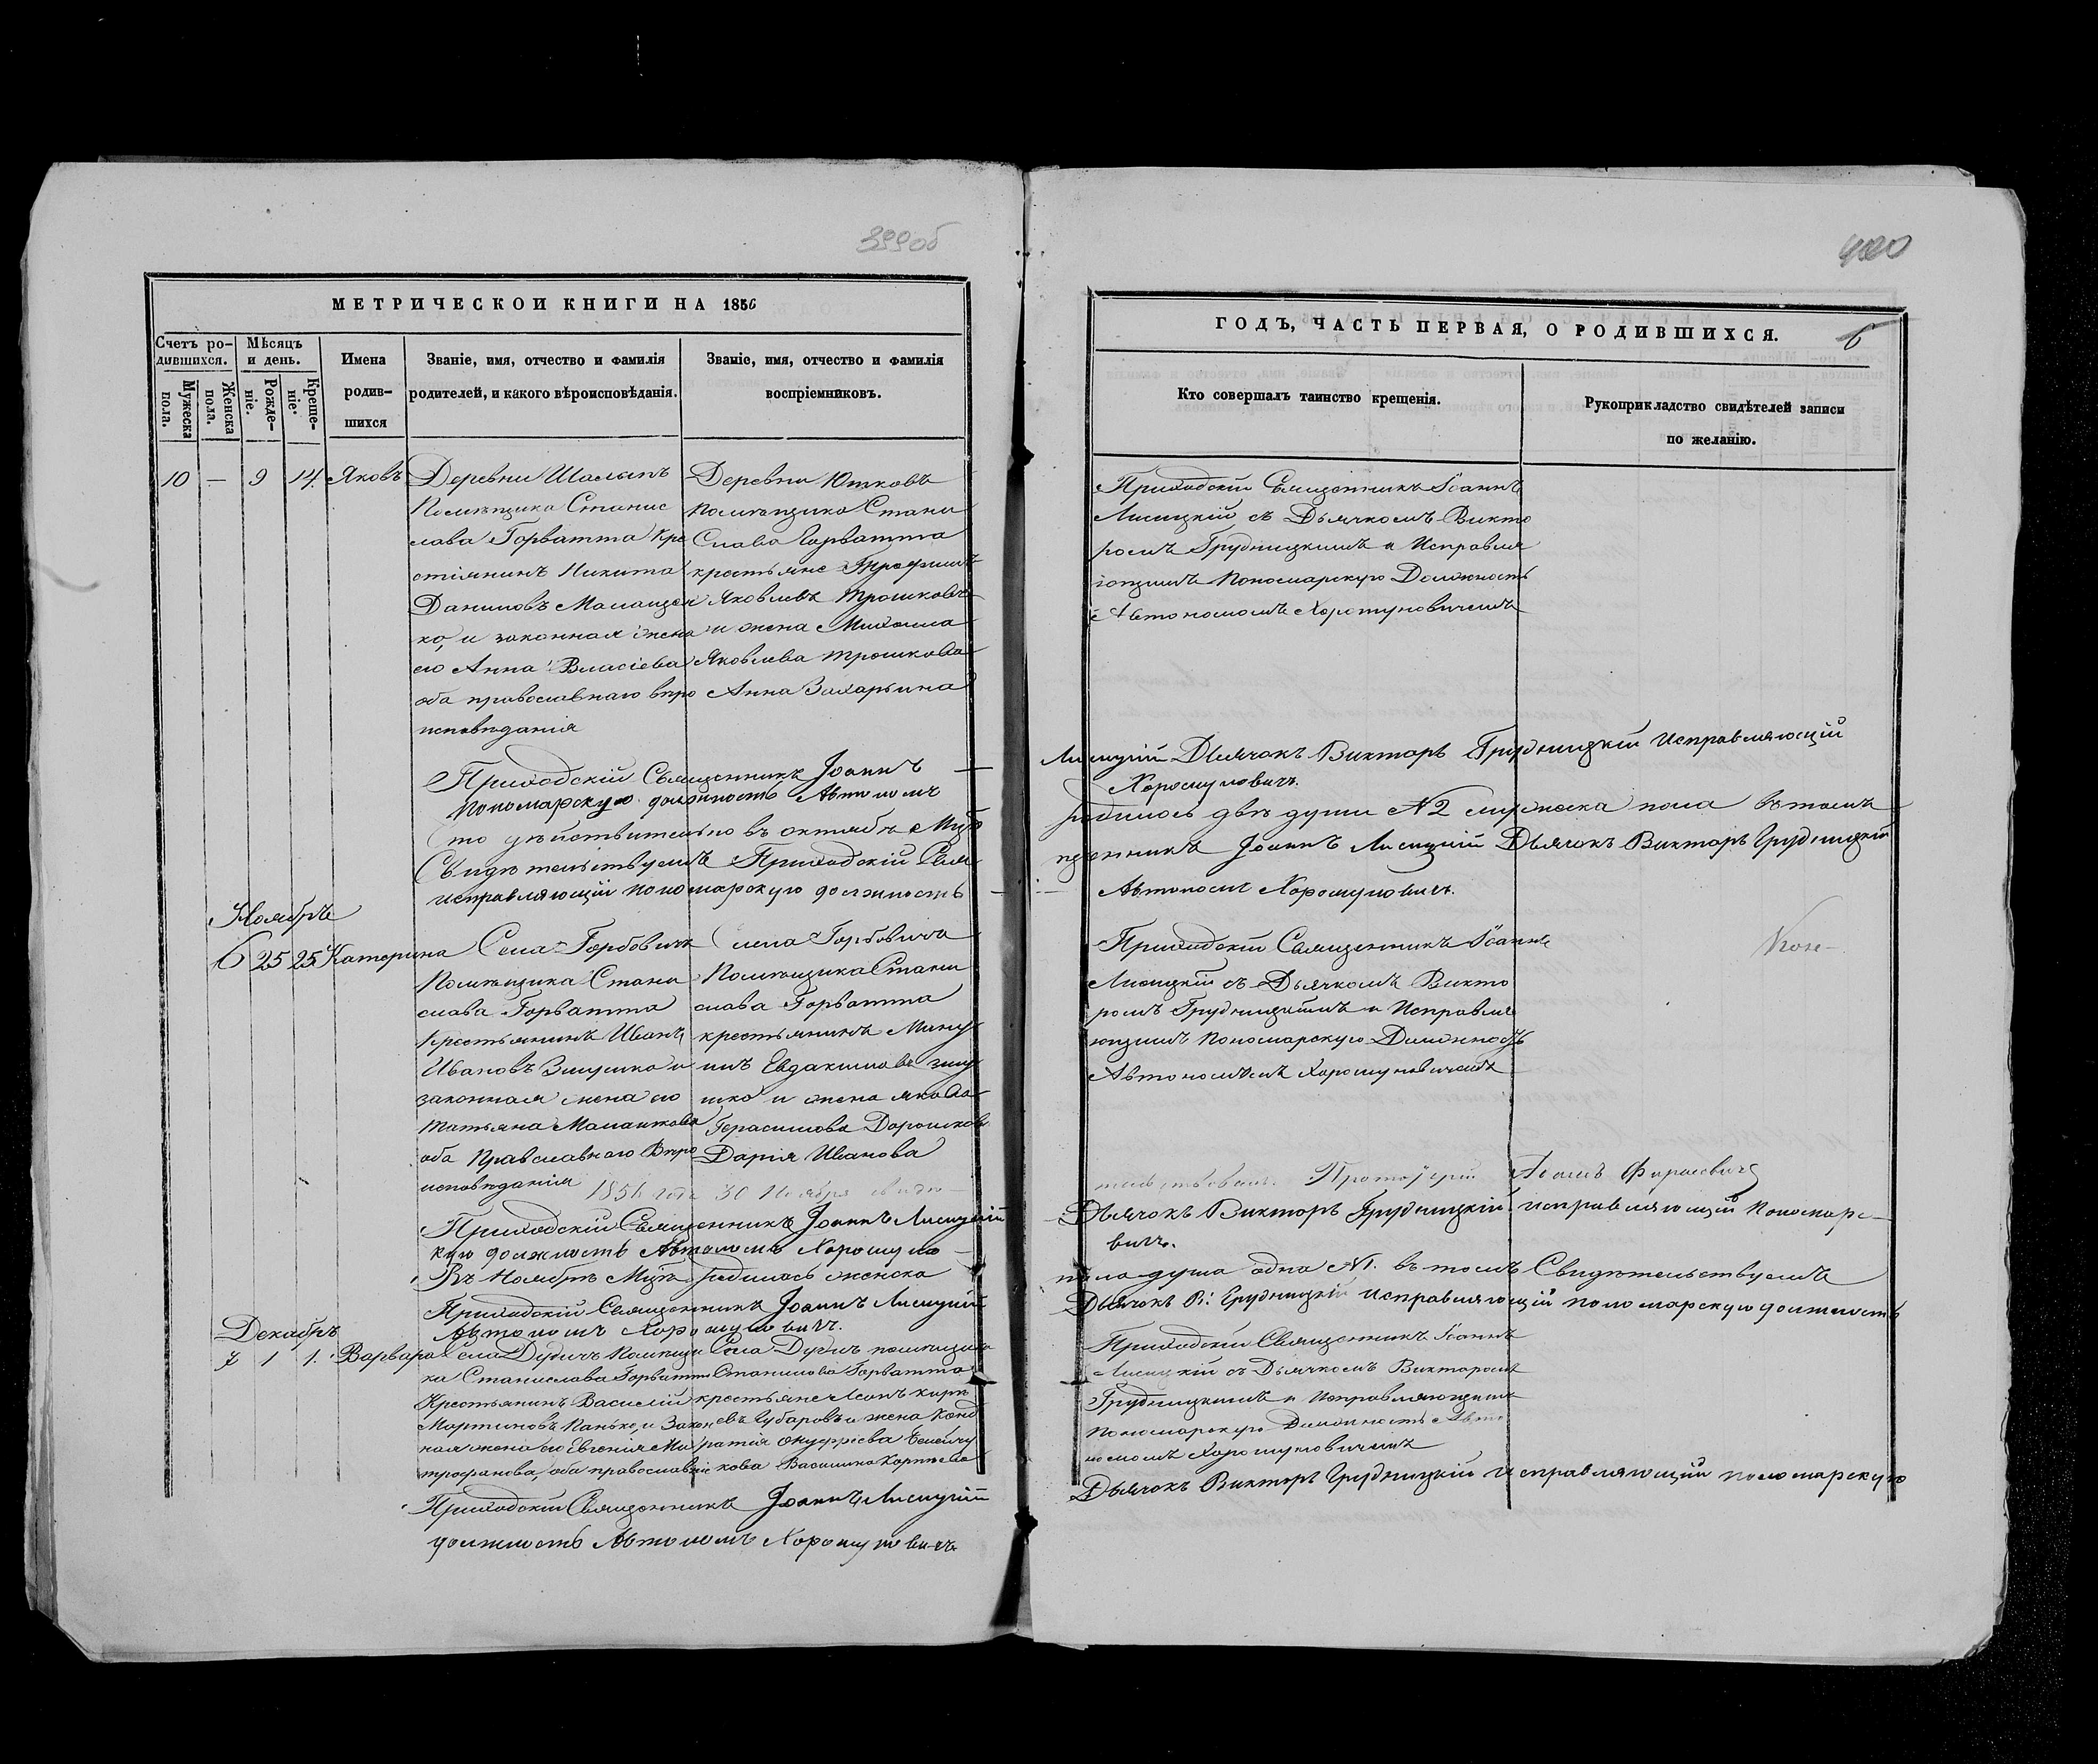 399об
МЕТРИЧЕСКОЙ КНИГИ НА 1856
Счетъ ро-
дившихся.
Мужеска
пола.
Женска
пола.
Мѣсяцъ
и день.
Рожде-
ніе.
Креще-
ніе.
Имена
родив-
шихся
Званіе, имя, отчество и фамилія
родителей, и какого вѣроисповѣданія.
Званіе, имя, отчество и фамилія
воспріемниковъ.
10 — 9 14. Яковъ
Деревни
Помѣщика Станис
лава Горватта Кре
стіянинъ Никита
Даниловъ
ко, и законная жена
его Анна Власіева
оба православнаго вѣро
исповѣданія
Деревни Юшковъ
помѣщика Стани
слава Горватта
крестьяне Трофимъ
Яковлевъ Трошковъ
и жена Михаила
Яковлева Трошкова
Анна Захарьина
Приходскій Священникъ Іоаннъ —
пономарскую должность Автономъ
что дѣйствительно въ октябрѣ Мцѣ
Свидѣтельствуемъ Приходскій Свя
исправляющій пономарскую должность
Ноябрь
6 25 25 Катерина
Села Горбовичъ
Помѣщика Стани
слава Горватта
Крестьянинъ Иванъ
Ивановъ Змушко и
законная жена его
Татьяна
оба Православнаго Вѣро
исповѣданія
Села Горбовича
Помѣщика Стани
слава Горватта
крестьянинъ
Евдакимовъ зму
шко и жена якова
Герасимова
Дарія Иванова
1856 года 30 Ноября свидѣ
Приходскій Священникъ Іоаннъ Лисицкій
кую должность Автономъ Хорошуно —
Въ Ноябрѣ Мцѣ родилась женска
Приходскій Священникъ Іоаннъ Лисицкій
Автономъ Хорошуновичъ.
Декабрь
7 1 1. Варвара
Села Дудичъ помѣщи
ка Станислава Горватта
Крестьянинъ Василій
Мартиновъ Панько, и закон
ная жена его Евгенія Ми
трофанова, оба православніе
Села Дудичъ помѣщика
Станислава Горватта
крестьяне
Губаровъ и жена Конд
ратія Онуфріева
кова Василина Карпѣева
Приходскій Священникъ Іоаннъ Лисицкій
должность Автономъ Хорошуновичъ
400
ГОДЪ, ЧАСТЬ ПЕРВАЯ, О РОДИВШИХСЯ.
6
Кто совершалъ таинство крещенія.
Рукоприкладство свидѣтелей записи
по желанію.
Приходскій Священникъ Іоаннъ
Лисицкій съ Дьячкомъ Викто
ромъ Грудницкимъ и Исправля
ющимъ Пономарскую Должность
Автономомъ Хорошуновичемъ
Лисицкій Дьячокъ Викторъ Грудницкій Исправляющій
Хорошуновичъ.
родилось двѣ души №2 мужеска пола вътомъ
щенникъ Іоаннъ Лисицкій Дьячокъ Викторъ Грудницкій
Автономъ Хорошуновичъ.
Приходскій Священникъ Іоаннъ
Лисицкій съ Дьячкомъ Викто
ромъ Грудницкимъ и Исправля
ющимъ Пономарскую Должность
Автономомъ Хорошуновичемъ
тельствовалъ Протоіерей
Дьячокъ Викторъ Грудницкій исправляющій пономарс—
вичъ.
пола душа одна №1. въ томъ Свидѣтельствуемъ
Дьячокъ В: Грудницкій Исправляющій пономарскую должность
Приходскій Священникъ Іоаннъ
Лисицкій съ Дьячкомъ Викторомъ
Грудницкимъ и Исправляющимъ
пономарскую Должность Авто
номомъ Хорошуновичемъ
Дьячокъ Викторъ Грудницкій исправляющій пономарскую